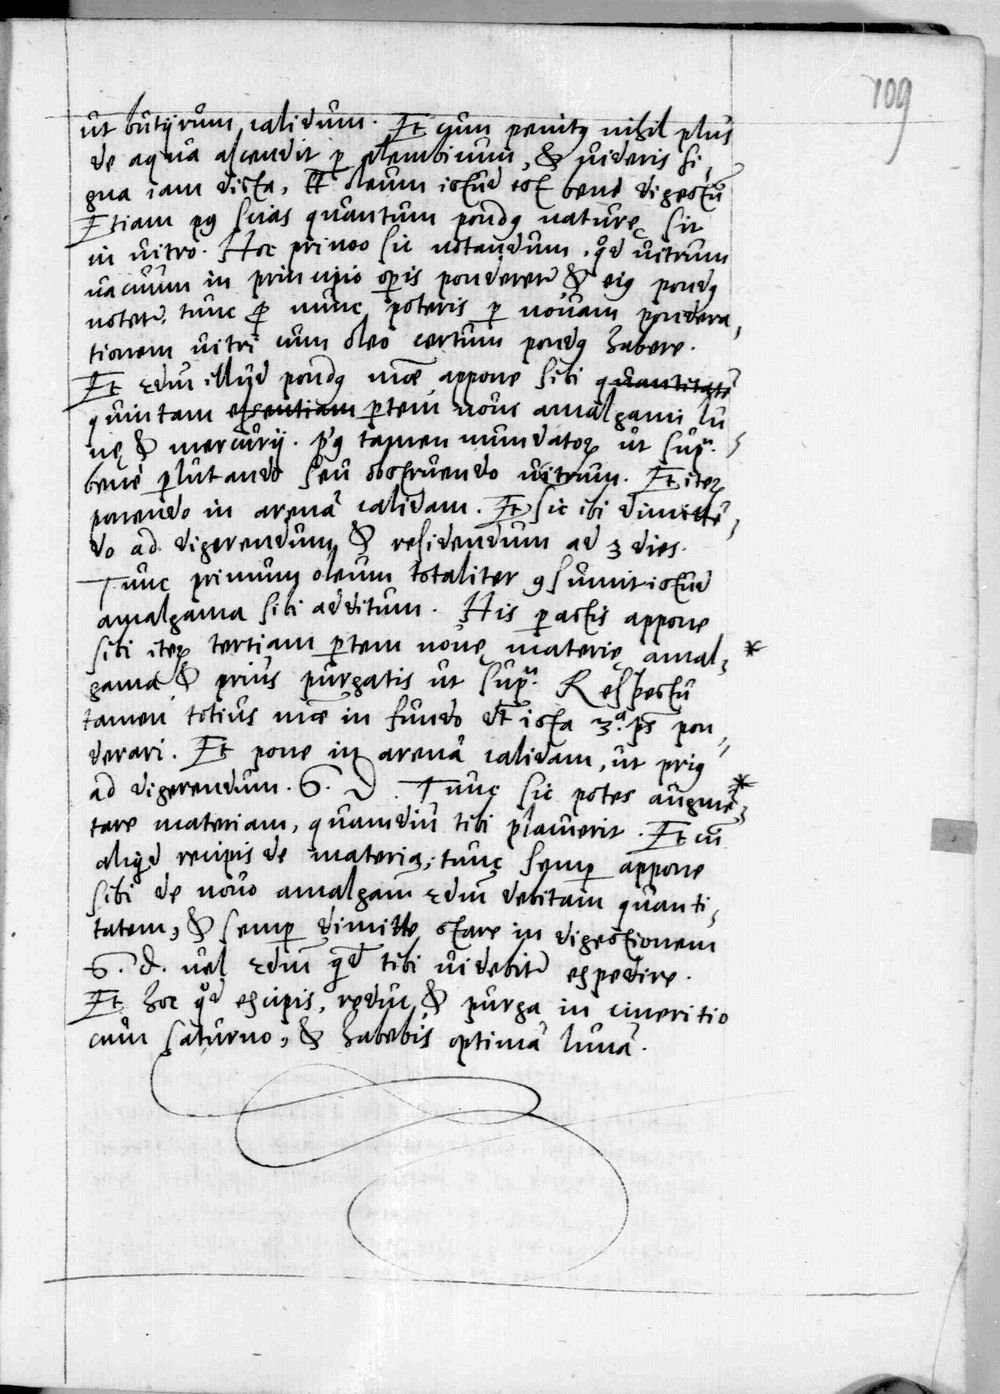 109
ut butyrum calidum. Et cum penitꝰ nihil plus
de aqua ascendit ꝑ alembicum, & videris si¸
gna iam dicta, tūc oleum istud est bene digestū
Etiam pꝰ scias quantum pondꝰ naturę sit
in vitro. Hoc primo sic notandum, qd vitrum
vacuum in principio opis ponderet & eiꝰ pondꝰ
notet, tunc nunc poteris ꝑ novam pondera¸
tionem vitri cum oleo certum pondꝰ habere.
Et illud pondꝰ mae appone sibi quantitatē
quintam essentiam ptem novi amalgami lu
nę & mercurij. pꝰ tamen mundatoꝝ ut supᵃ.
bene plutando seu obstruendo vitrum. Et iteꝝ
ponendo in arenā calidam. Et sic ibi dimittē¸
do ad digerendum & residendum ad 3 dies.
Tunc primum oleum totaliter ꝯsumit istud
amalgama sibi additum. His pactis appone
sibi iteꝝ tertiam ptem novę materię amal¸ *
gama & prius purgatis ut supᵃ. Respectu
tamen totius mae in fundo dt ista 3ᵃ. ps pon¸
derari. Et pone in arenā calidam, ut priꝰ
ad digerendum. 6. d. Tunc sic potes augmē¸ *
tare materiam, quamdiu tibi placuerit. Et cū
aliqd recipis de materia, tunc semp appone
sibi de novo amalgam debitam quanti¸
tatem, & semp dimitte stare in digestionem
6. d. vel qd tibi videbit expedire.
Et hoc qd excipis, reduc & purga in cineritio
cum saturno, & habebis optimā lunā.